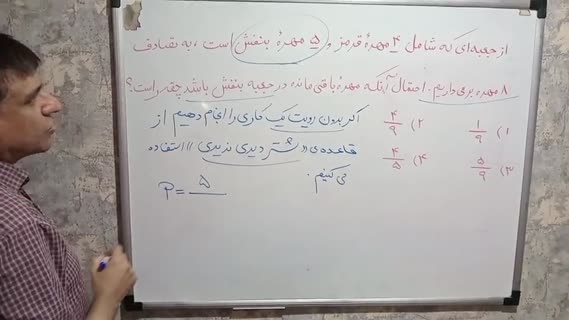 از جعبه‌ای که شامل ۴ مهرهٔ قرمز و ۵ مهرهٔ بنفش است، به تصادف
۸ مهره برمی‌داریم. احتمال آنکه مهرهٔ باقی‌مانده در جعبه بنفش باشد چقدر است؟
۱) ۱/۹ ۲) ۴/۹
۳) ۵/۹ ۴) ۴/۵
اگر بدون رویت یک کاری را انجام دهیم از
قاعده‌ی «شتر دیدی ندیدی» استفاده
می کنیم.
P = ۵